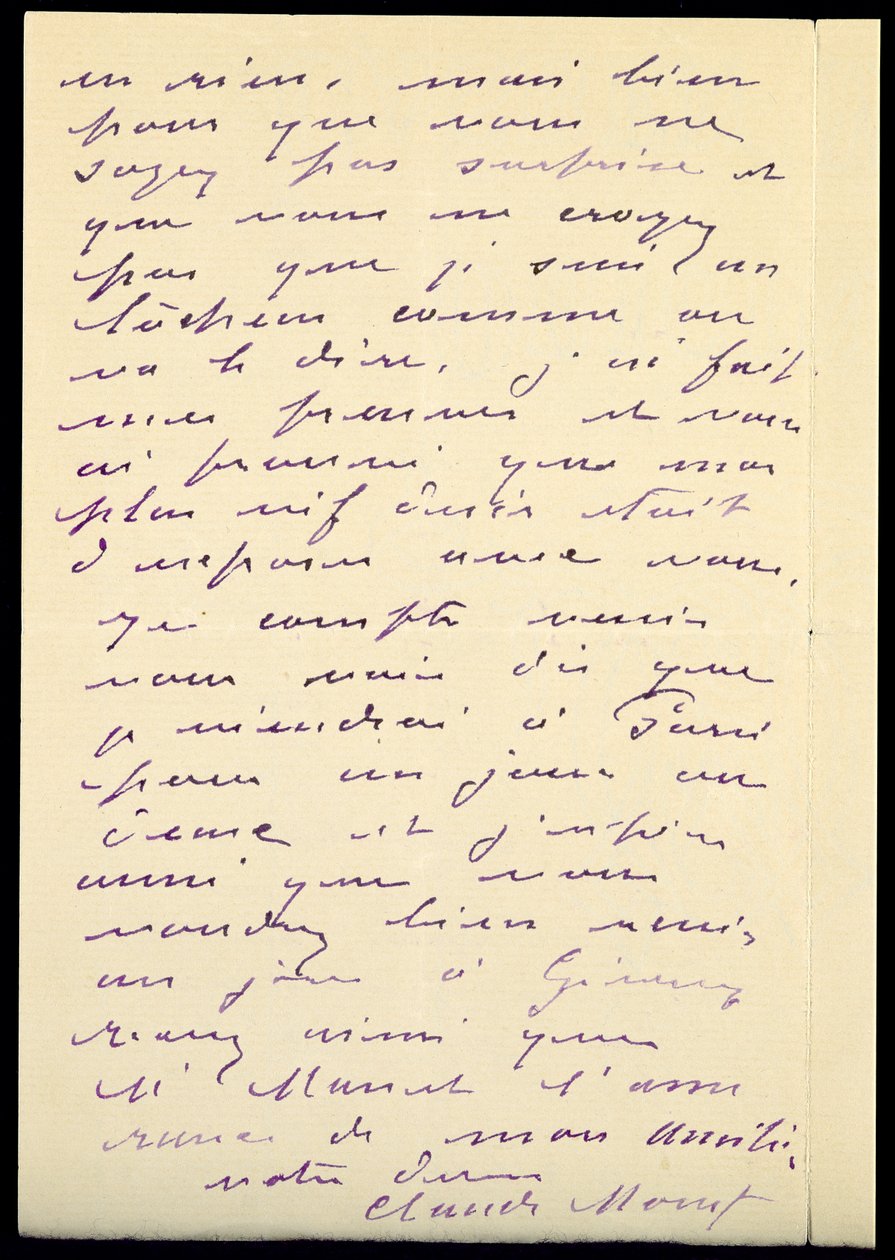 en rien, mais bien
pour que vous ne
soyez pas surprise et
que vous ne croyez
pas que je suis un
lâcheur comme on
va le dire, j'ai fait
mes preuves et vous
ai prouvé que mon
plus vif désir était
d'exposer avec vous.
Je compte venir
vous voir dès que
je viendrai à Paris
pour un jour ou
deux et j'espère
aussi que vous
voudrez bien venir
un jour à Giverny
recevez ainsi que
Mr Manet l'assu
rance de mon amitié.
votre dévoué
Claude Monet